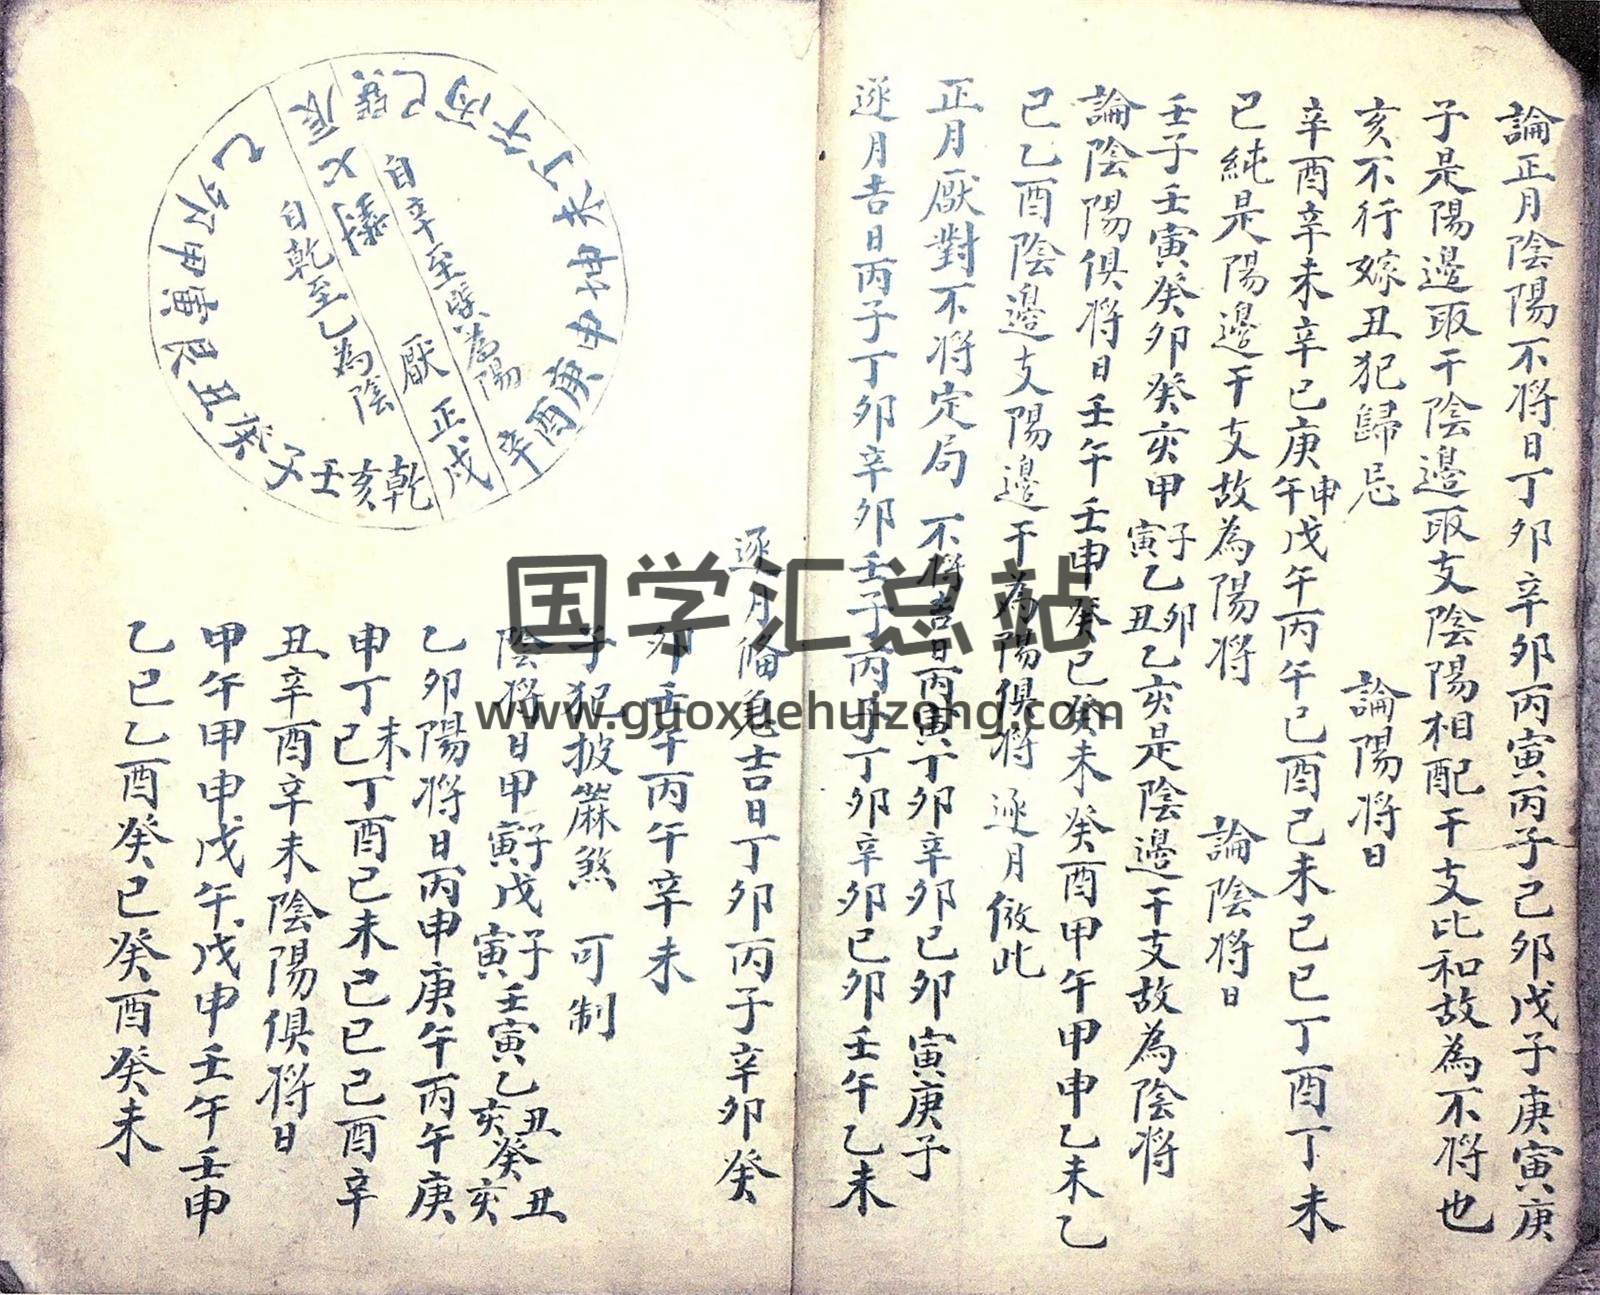 論正月陰陽不將日丁卯辛卯丙寅丙子己卯戊子庚寅庚
子是陽邉取干陰邉取支陰陽相配干支比和故為不將也
亥不行嫁丑犯歸忌 論陽將日
辛酉辛未辛巳庚午申戊午丙午己酉己未己巳丁酉丁未
巳純是陽邉干支故為陽將 論陰將日
壬子壬寅癸卯癸亥甲寅子乙丑卯乙亥是陰邉干支故為陰將
論陰陽俱將日壬午壬申癸巳癸未癸酉甲午甲申乙未乙
巳乙酉陰邉支陽邉干為陽俱將 逐月倣此
正月厭對不將定局 不將吉日丙寅丁卯辛卯己卯寅庚子
逐月吉日丙子丁卯辛卯壬子丙子丁卯辛卯己卯壬午乙未
逐月脩造吉日丁卯丙子辛卯癸
卯壬午丙午辛未
子犯披蔴煞 可制
陰將日甲寅子戊寅子壬寅乙丑亥癸丑亥
乙卯陽將日丙申庚午丙午庚
申丁未巳丁酉己未己巳己酉辛
丑辛酉辛未陰陽俱將日
甲午甲申戊午戊申壬午壬申
乙巳乙酉癸巳癸酉癸未
乙卯甲寅艮丑癸子壬亥乾戌辛酉庚申坤未丁午丙巳巽辰
自辛至巽為陽
自乾至乙為陰
厭正
国学汇总站
www.guoxuehuizong.com